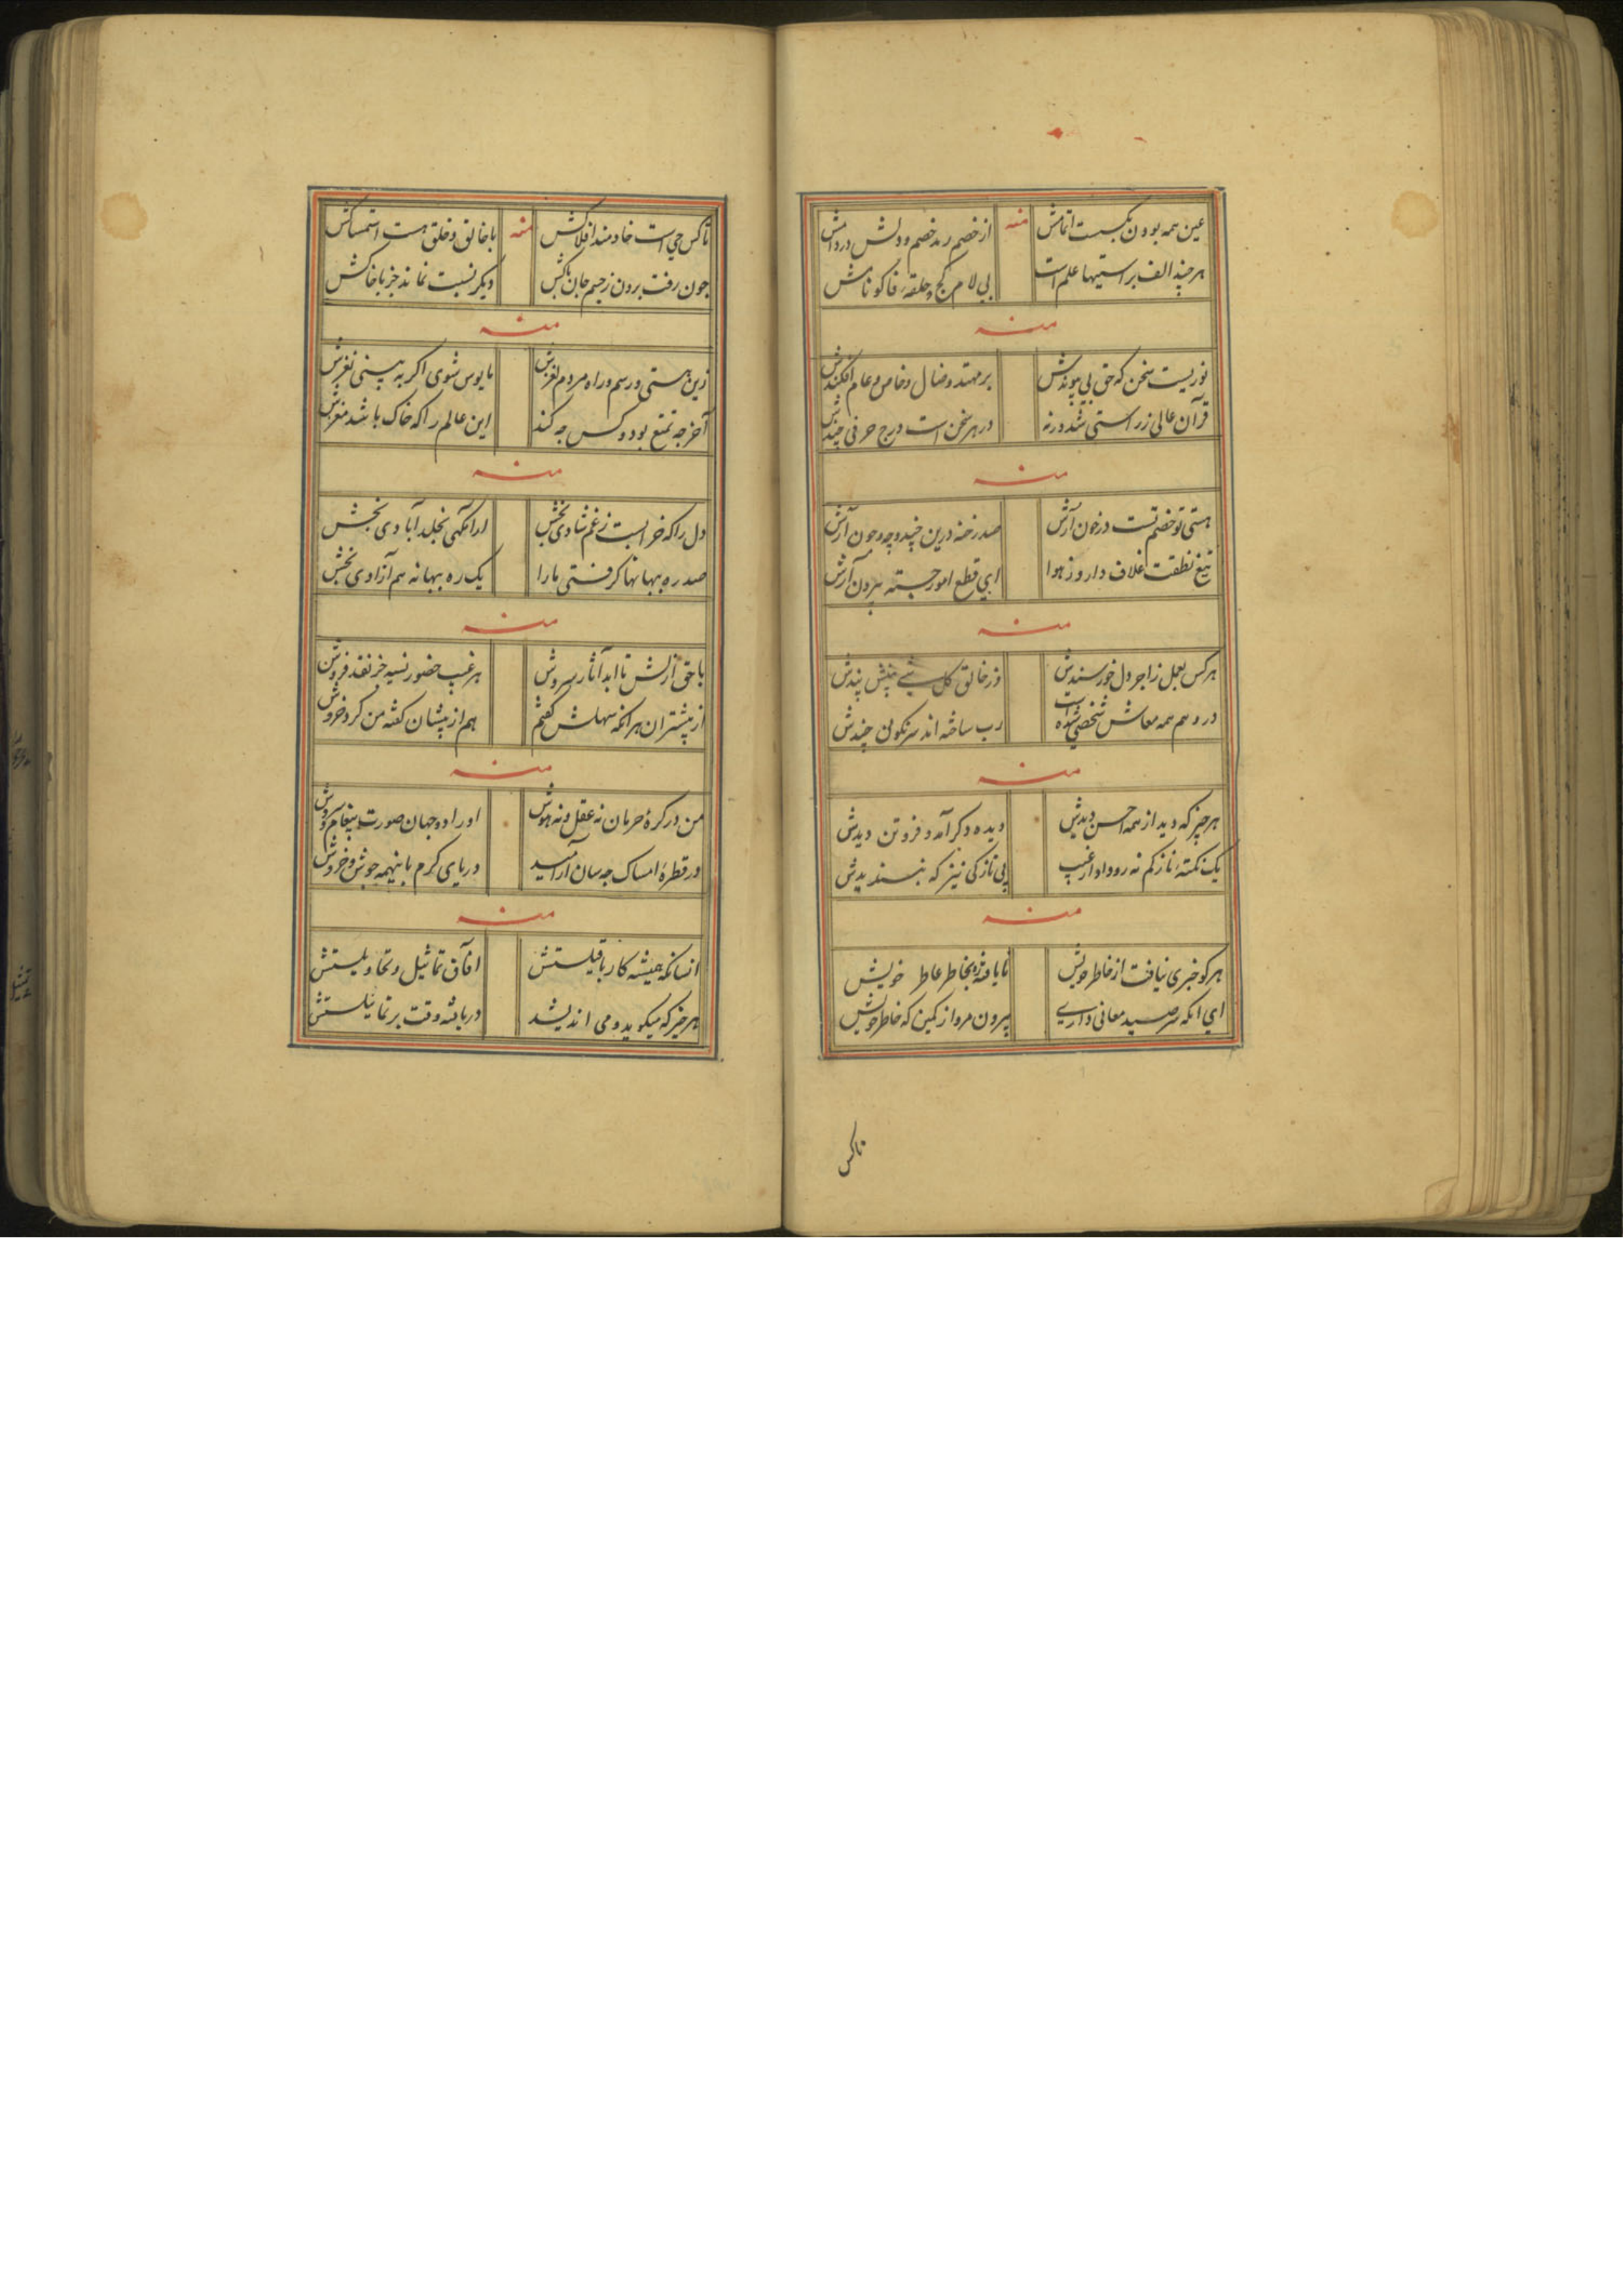 عین همه بودن نکبت اتمامش
منه
از خصم رمد خصم و دلش در دامش
هر چند الف براستیها علم است
بی لام کج و حلقهٔ فا کو نامش
منه
نوریست سخن که حق بی پیوندش
بر مهتد و ضال و خاص و عام افکندش
قرآن عالی ز راستی شد ورنه
در هر سخن است درج حرفی چندش
منه
هستی تو خصم تست در خون آرش
صد رخنه درین چند و چه و چون آرش
تیغ نطقت غلاف دارد ز هوا
ای قطع امور جسته بیرون آرش
منه
هرکس بعمل ز اجر دل خورسندش
در وهم همه معاش شخصی شده است
رب ساخته اند سرنگونی چندش
منه
هر چیز که دید از همه احسن دیدش
دیده دگر آمد و فزوتن دیدش
یک نکتهٔ نازکم نه رو داد از غیب
بی نازکی نیز که نپسندیدش
منه
هر کو خبری نیافت از خاطر خویش
نایافته بخاطر عاطر خویش
ای انکه سر صید معانی داری
بیرون مرو از کمین که خاطر خویش
ناکس
تا کس حی است خادمند افلاکش
منه
با خالق و خلق هست استمساکش
چون رفت برون ز جسم جان پاکش
دیگر نسبت نماند جز با خاکش
منه
زین هستی و رسم و راه مردم لغزش
مایوس شوی اگر ببینی نغزش
آخر چه تمتع بود و کس چه کند
این عالم را که خاک باشد مغزش
منه
دل را که خرابست ز غم شادی بخش
ارامگهی بخلد آبادی بخش
صد ره ببهانها گرفتی ما را
یک ره ببهانه هم آزادی بخش
منه
با حق ازلش تا ابد آثار سروش
هر غیب حضور نسیه جز نقد فروش
از پیشتران هر انکه سهلش گفتم
هم از پیشان گفته من کرد خروش
منه
من در کرهٔ حرمان نه عقل و نه هوش
او را دو جهان صورت پیغام سروش
در قطرهٔ امساک چه سان آرامید
دریای کرم با اینهمه جوش و خروش
منه
انسانکه همیشه کار با قیلستش
افاق تماثیل و تحاویلستش
هر چیز که میگوید و می اندیشد
دریافته وقت بر تماثیلستش